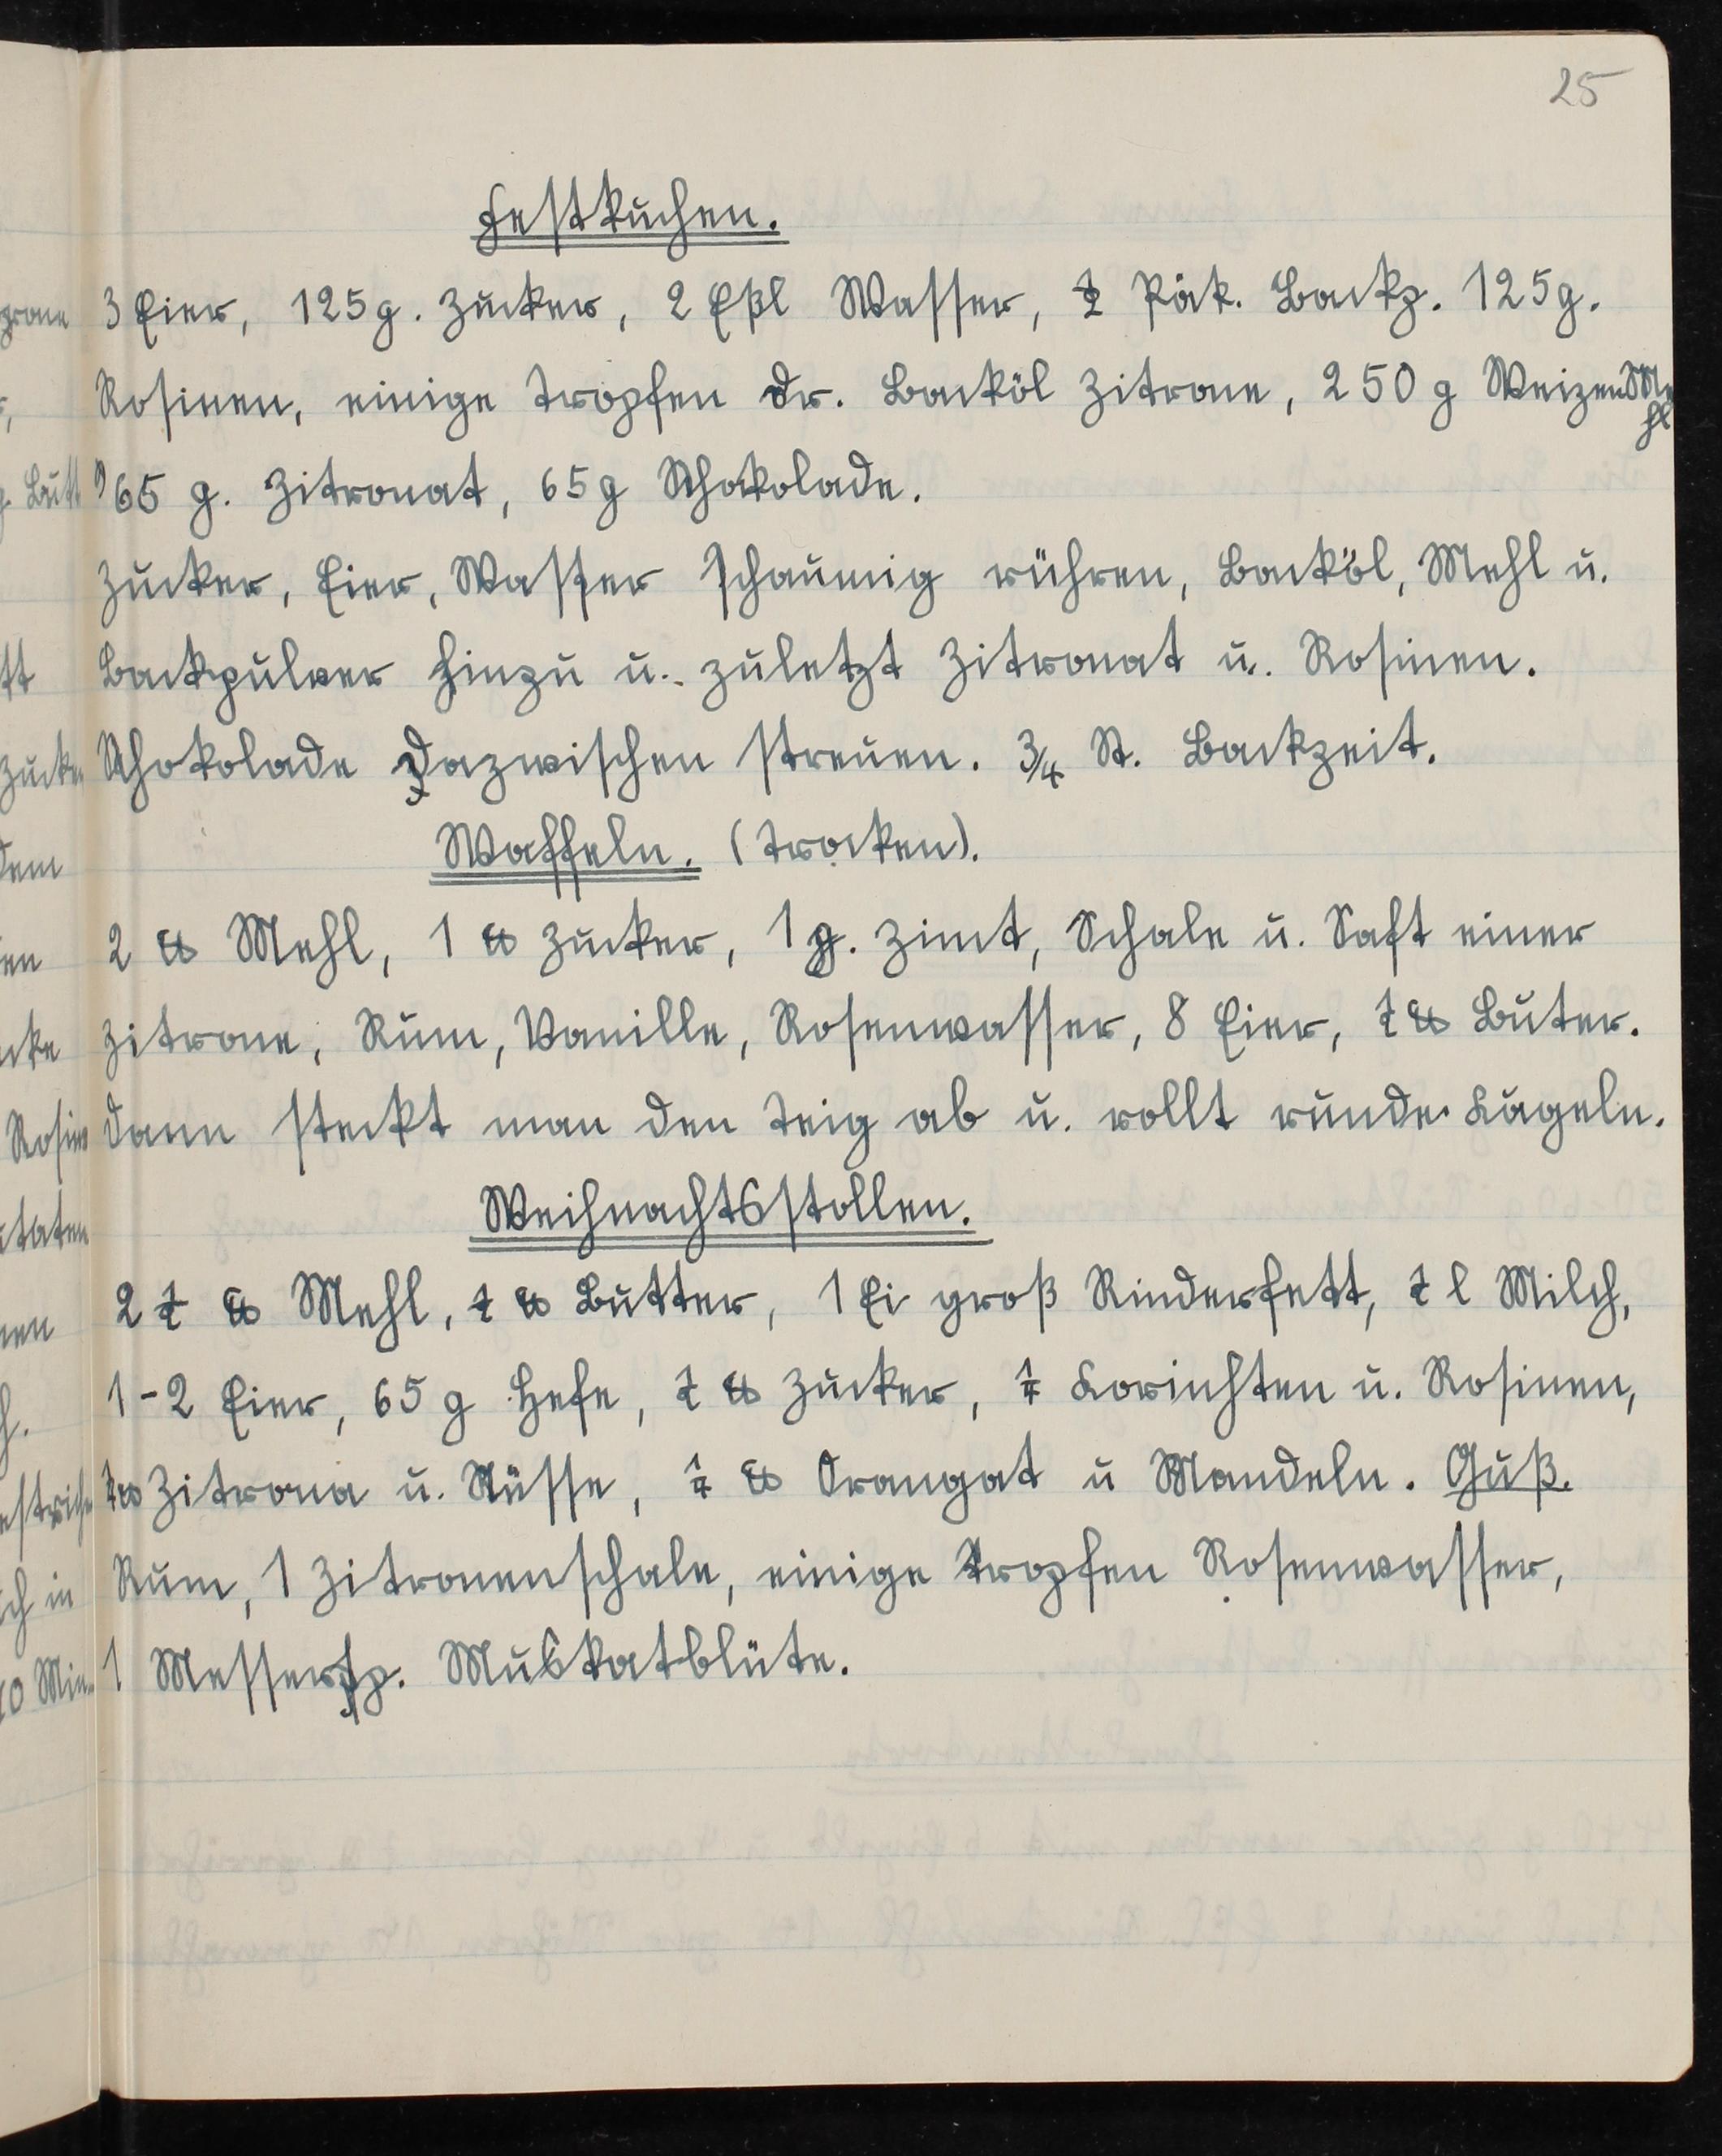 25
Festkuchen.
3 Eier, 125g. Zucker, 2 Eßl Wasser, ½ Päk. Backp. 125g.
Rosinen, einige Tropfen Dr. Backöl Zitrone, 250 g WeizenMehl
65 g. Zitronat, 65g Schokolade.
Zucker, Eier, Wasser schaumig rühren, Backöl, Mehl u.
Backpulver hinzu u. zuletzt Zitronat u. Rosinen.
Schokolade dazwischen streuen. 3/4 St. Backzeit.
Waffeln. (Trocken).
2 ℔ Mehl, 1 ℔ Zucker, 1 g. Zimt, Schale u. Saft einer
Zitrone, Rum, Vanille, Rosenwasser, 8 Eier, ½ ℔ Buter.
Dann steckt man den Teig ab u. rollt runde Kugeln.
Weihnachtsstollen.
2 ½ ℔ Mehl, ½ ℔ Butter, 1 Ei groß Rinderfett, ½ l Milch,
1-2 Eier, 65 g Hefe, ½ ℔ Zucker, ¼ Korinthen u. Rosinen,
½ ℔ Zitrona u. Nüsse, ¼ ℔ Orangat u Mandeln. Guß.
Rum, 1 Zitronenschale, einige Tropfen Rosenwasser,
1 Messersp. Muskatblüte.